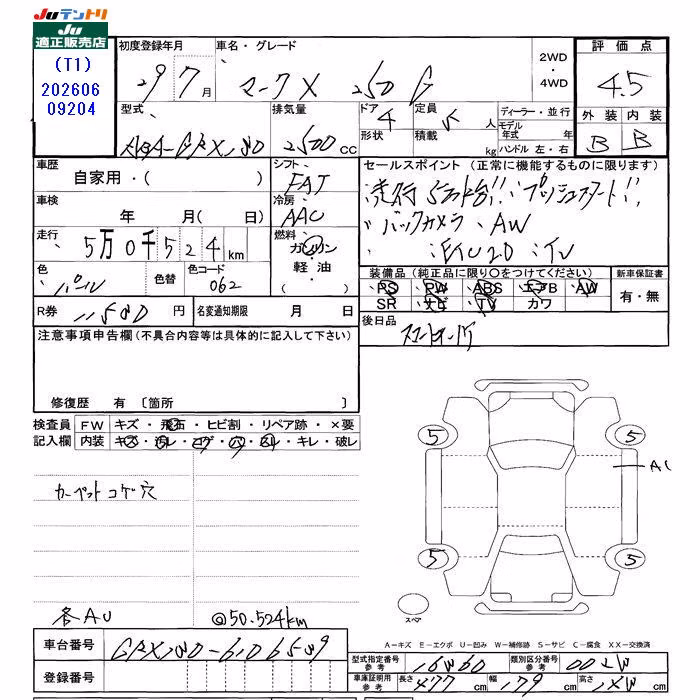 JUテントリ
JU
適正販売店
(T1)
202606
09204
初度登録年月
29 7月
車名・グレード
マークX 250 G
2WD
・
4WD
評価点
4.5
外装 内装
B B
型式
排気量
2500cc
ドア 4
形状
定員 5人
積載 kg
ディーラー・並行
モデル年式 年
ハンドル 左・右
車歴
自家用・( )
シフト
FAT
セールスポイント(正常に機能するものに限ります)
走行5万台!! プッシュスタート!!
・バックカメラ ・AW
・ETC2.0 ・TV
車検
年 月(日)
冷房
AAC
走行
5万0千524km
燃料
ガソリン
・
軽油
・( )
色
パール
色替
色コード
062
装備品(純正品に限り○をつけてください)
PS PW ABS エアB AW
SR ナビ TV カワ
新車保証書
有・無
R券 11580円
名変通知期限 月 日
後日品
注意事項申告欄(不具合内容等は具体的に記入して下さい)
修復歴 有〔箇所 〕
検査員記入欄
FW キズ・飛石・ヒビ割・リペア跡・×要
内装 キズ・汚レ・コゲ・穴・ヌレ・キレ・破レ
カーペットコゲ穴
5 5
A1
5 5
スペア
各AU @50.524km
A-キズ E-エクボ U-凹み W-補修跡 S-サビ C-腐食 XX-交換済
車台番号 GRX130-6106589
登録番号
型式指定番号 参考 16860
類別区分番号 参考 002
車庫証明用 参考 長さ 477cm 幅 179cm 高さ cm